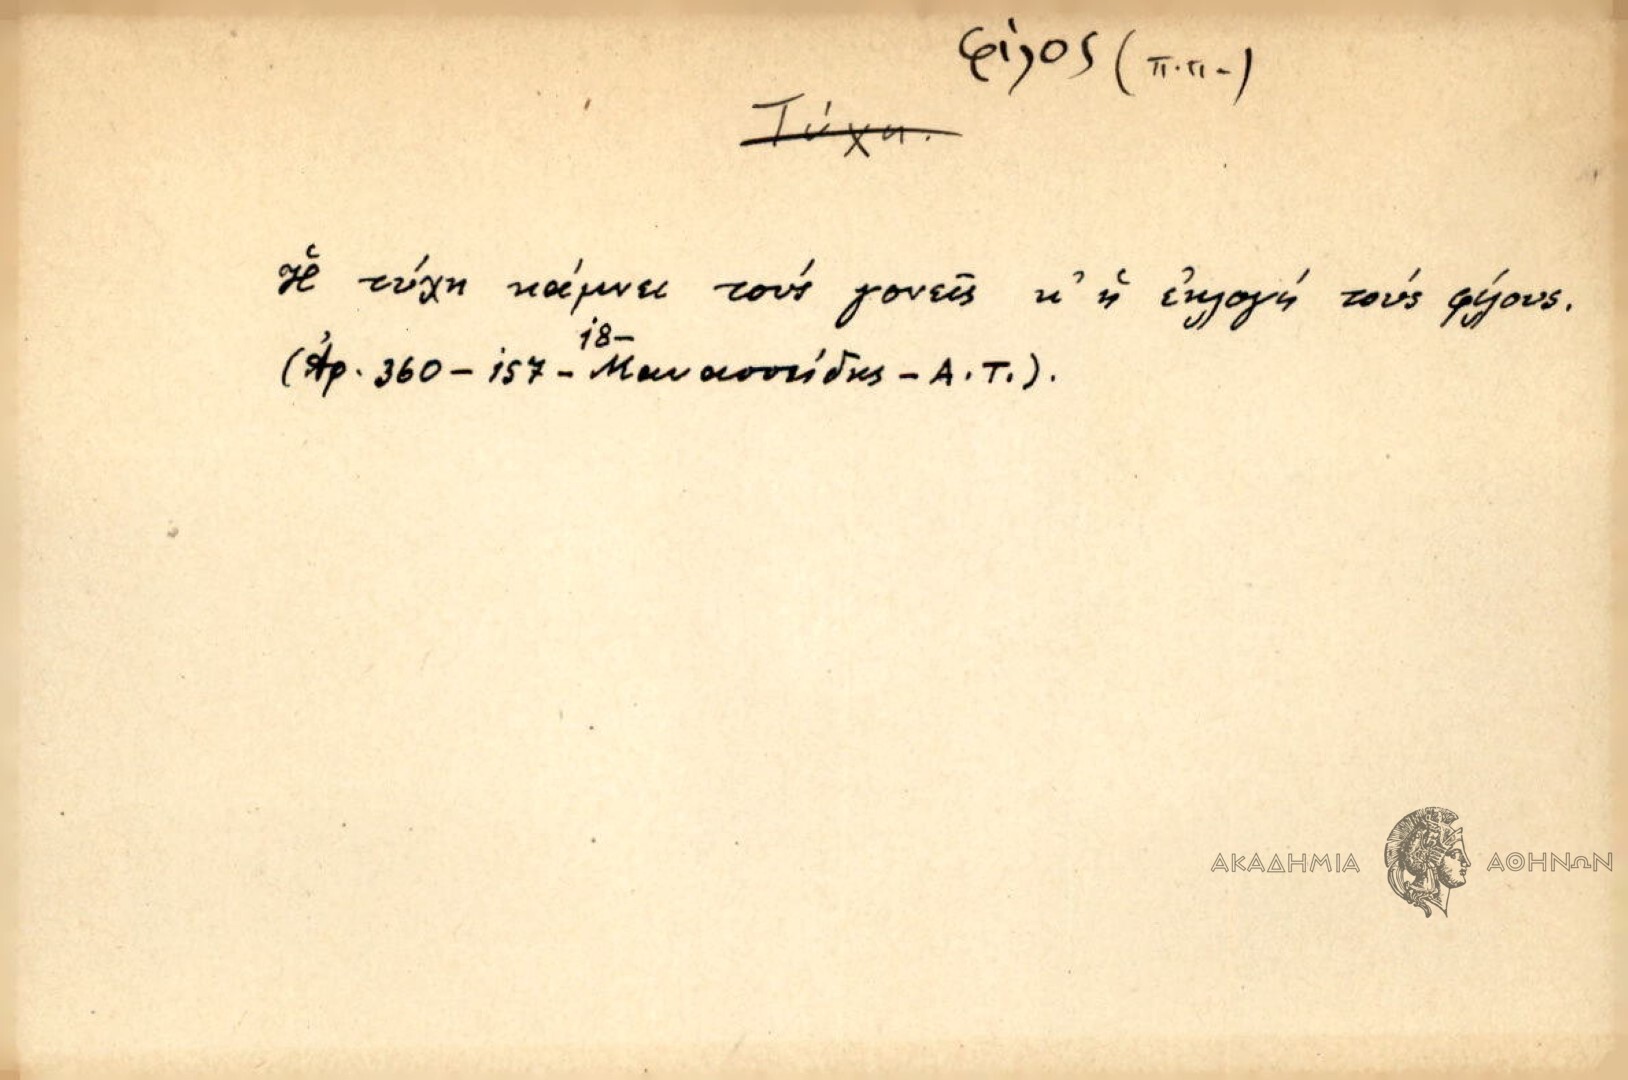 φίλος (π.π.-)
Τύχη.
Ἡ τύχη κάμνει τούς γονεῖς κ' ἡ ἐκλογή τούς φίλους.
18-
(Ἀρ. 360 - 157 - Μανασσείδης - Α.Τ.).
ΑΚΑΔΗΜΙΑ ΑΘΗΝΩΝ